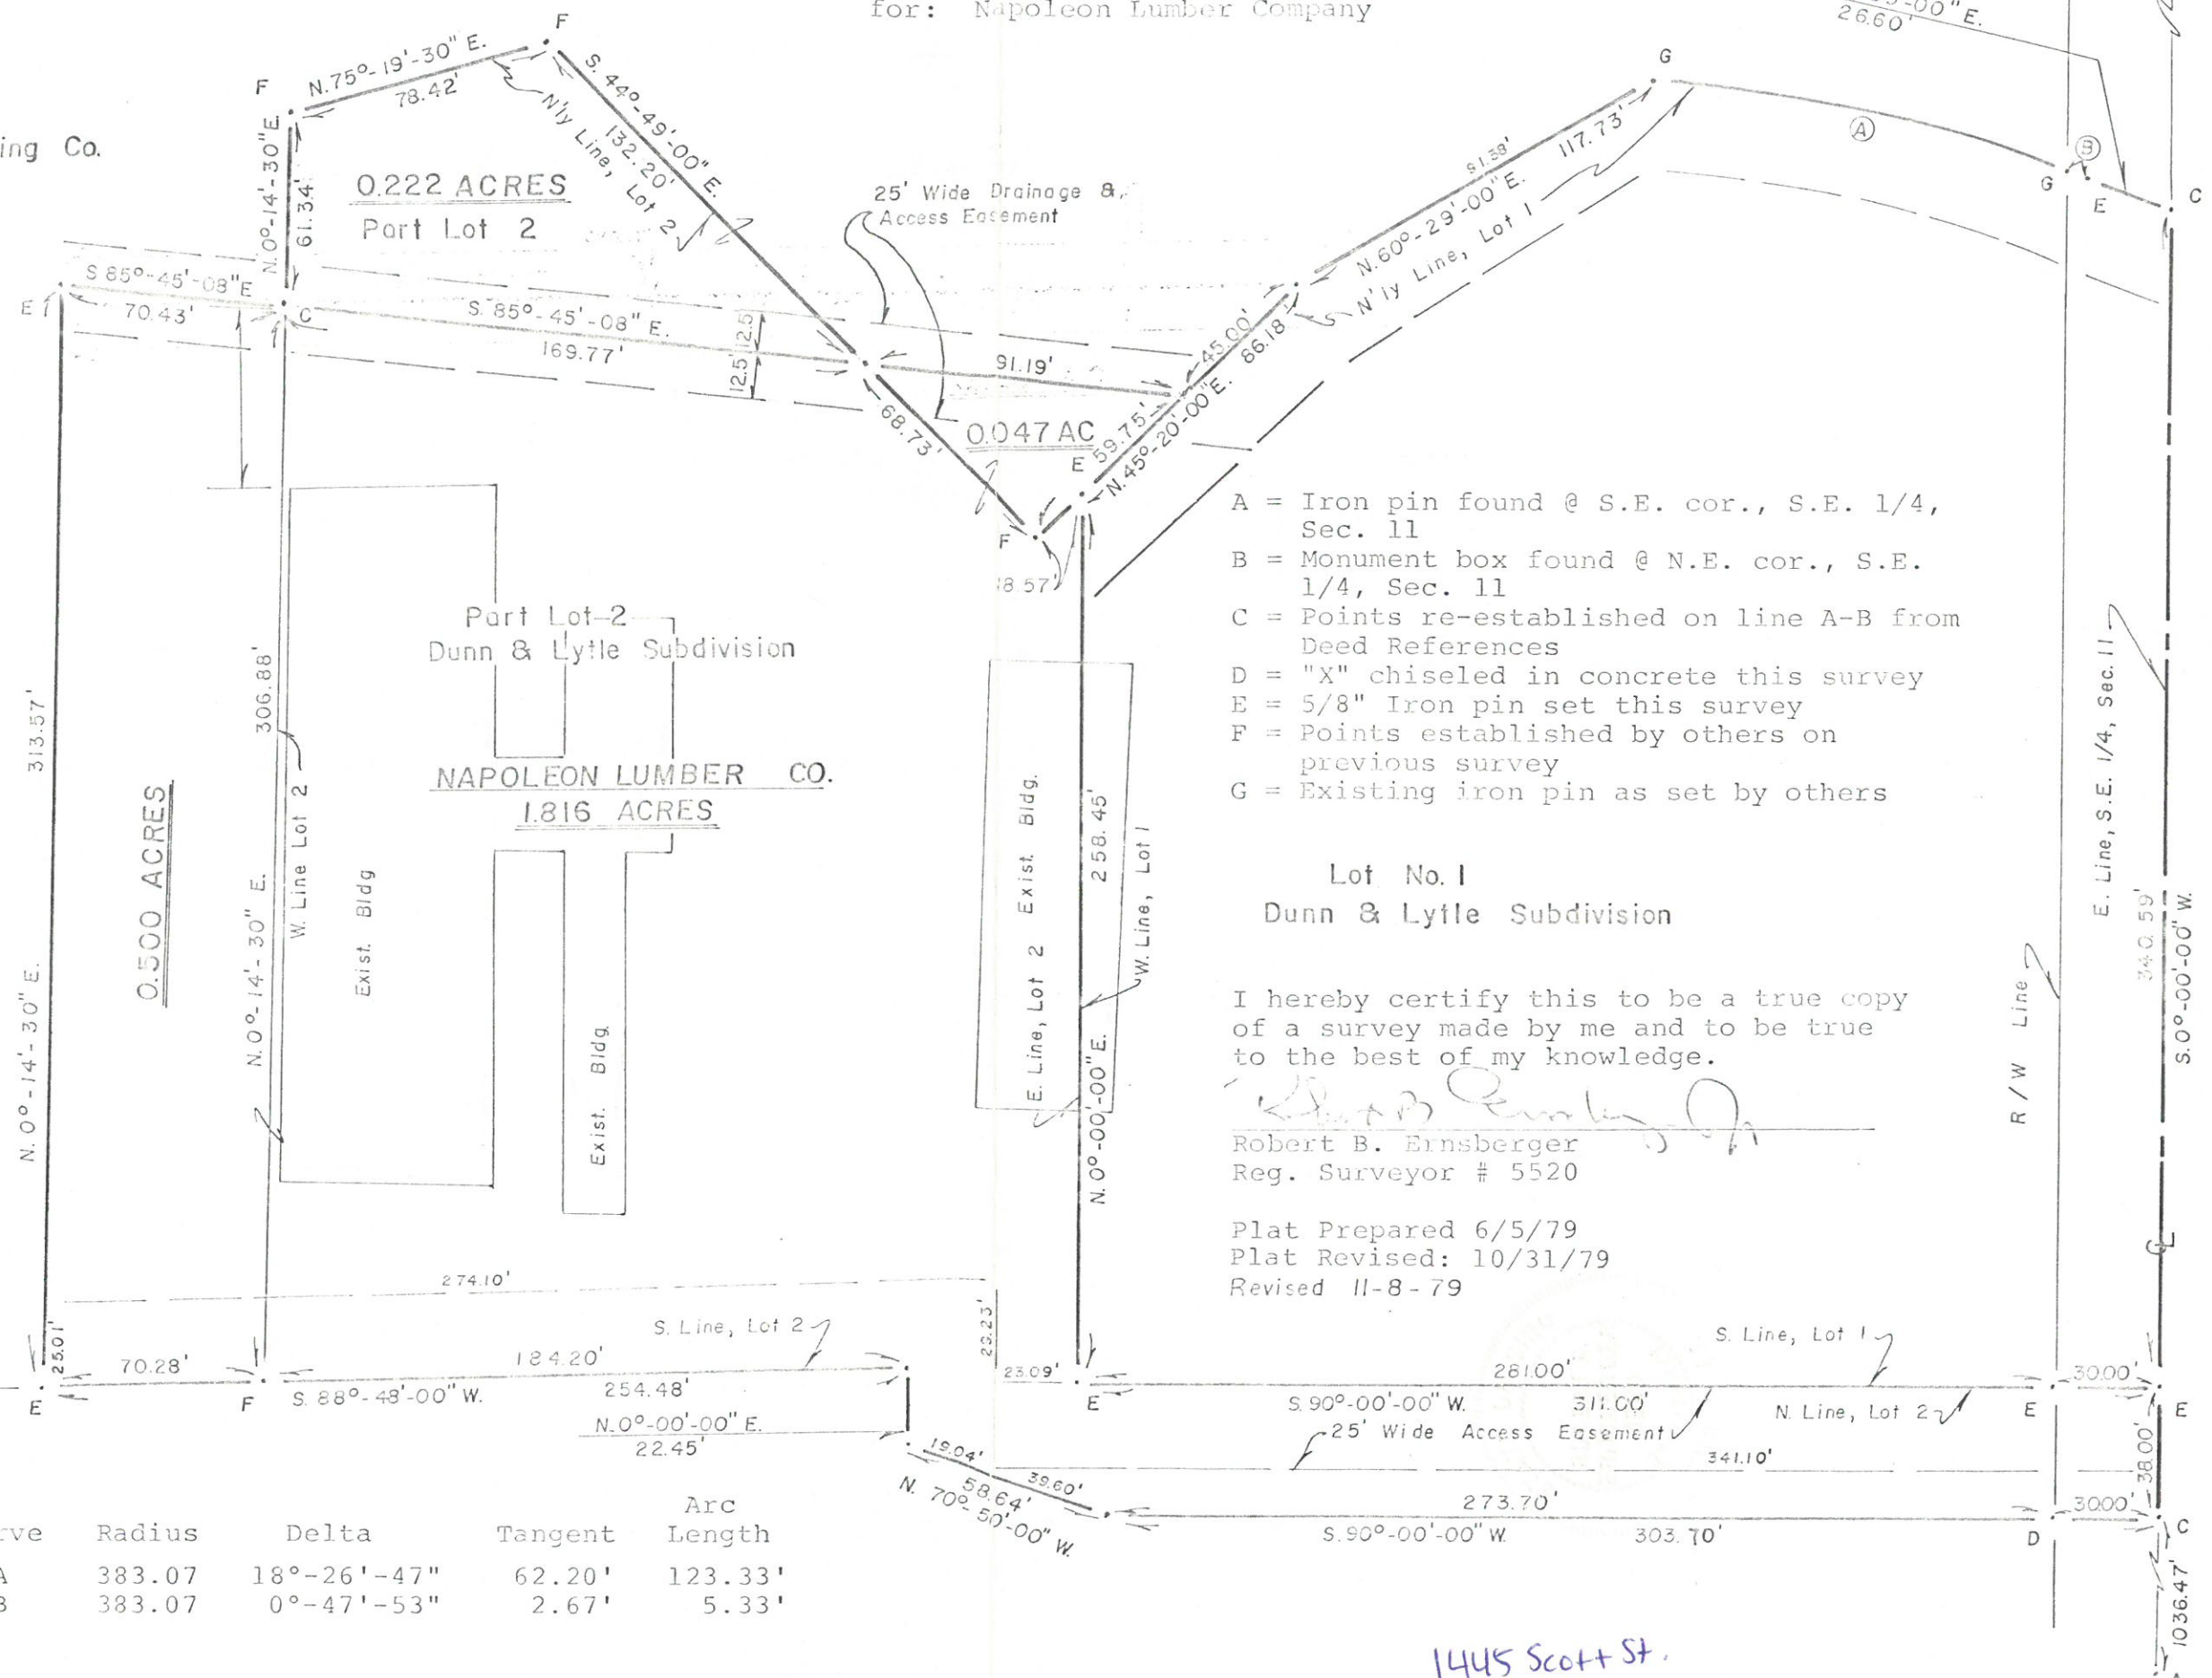 for: Napoleon Lumber Company
-00" E.
26.60'
ing Co.
F
N. 75°-19'-30" E.
78.42'
F
N'ly Line, Lot 2
S. 44°-49'-00" E.
132.20'
N. 0°-14'-30" E.
61.34'
0.222 ACRES
Part Lot 2
25' Wide Drainage &
Access Easement
G
A
B
G
E
C
91.38'
117.73'
N. 60°-29'-00" E.
N'ly Line, Lot 1
S 85°-45'-08" E
70.43'
E
C
S. 85°-45'-08" E.
169.77'
12.5'
12.5'
91.19'
45.00'
86.18'
59.75'
N. 45°-20'-00" E.
68.73'
0.047 AC
E
F
18.57'
A = Iron pin found @ S.E. cor., S.E. 1/4,
Sec. 11
B = Monument box found @ N.E. cor., S.E.
1/4, Sec. 11
C = Points re-established on line A-B from
Deed References
D = "X" chiseled in concrete this survey
E = 5/8" Iron pin set this survey
F = Points established by others on
previous survey
G = Existing iron pin as set by others
Part Lot 2
Dunn & Lytle Subdivision
NAPOLEON LUMBER CO.
1.816 ACRES
313.57'
N. 0°-14'-30" E.
0.500 ACRES
306.88'
N. 0°-14'-30" E.
W. Line Lot 2
Exist. Bldg
Exist. Bldg.
E. Line, Lot 2 Exist. Bldg.
258.45'
N. 0°-00'-00" E.
W. Line, Lot 1
Lot No. 1
Dunn & Lytle Subdivision
I hereby certify this to be a true copy
of a survey made by me and to be true
to the best of my knowledge.
Robert B. Ernsberger
Reg. Surveyor # 5520
Plat Prepared 6/5/79
Plat Revised: 10/31/79
Revised 11-8-79
R/W Line
E. Line, S.E. 1/4, Sec. 11
340.59'
S. 0°-00'-00" W.
274.10'
25.01'
70.28'
S. Line, Lot 2
184.20'
29.23'
23.09'
E
F
S. 88°-48'-00" W.
254.48'
N. 0°-00'-00" E.
22.45'
E
S. Line, Lot 1
281.00'
30.00'
S. 90°-00'-00" W.
311.00'
N. Line, Lot 2
E
E
25' Wide Access Easement
341.10'
38.00'
19.04'
39.60'
58.64'
N. 70°-50'-00" W.
273.70'
30.00'
S. 90°-00'-00" W.
303.70'
D
C
1036.47'
rve Radius Delta Tangent Arc Length
A 383.07 18°-26'-47" 62.20' 123.33'
B 383.07 0°-47'-53" 2.67' 5.33'
1445 Scott St.